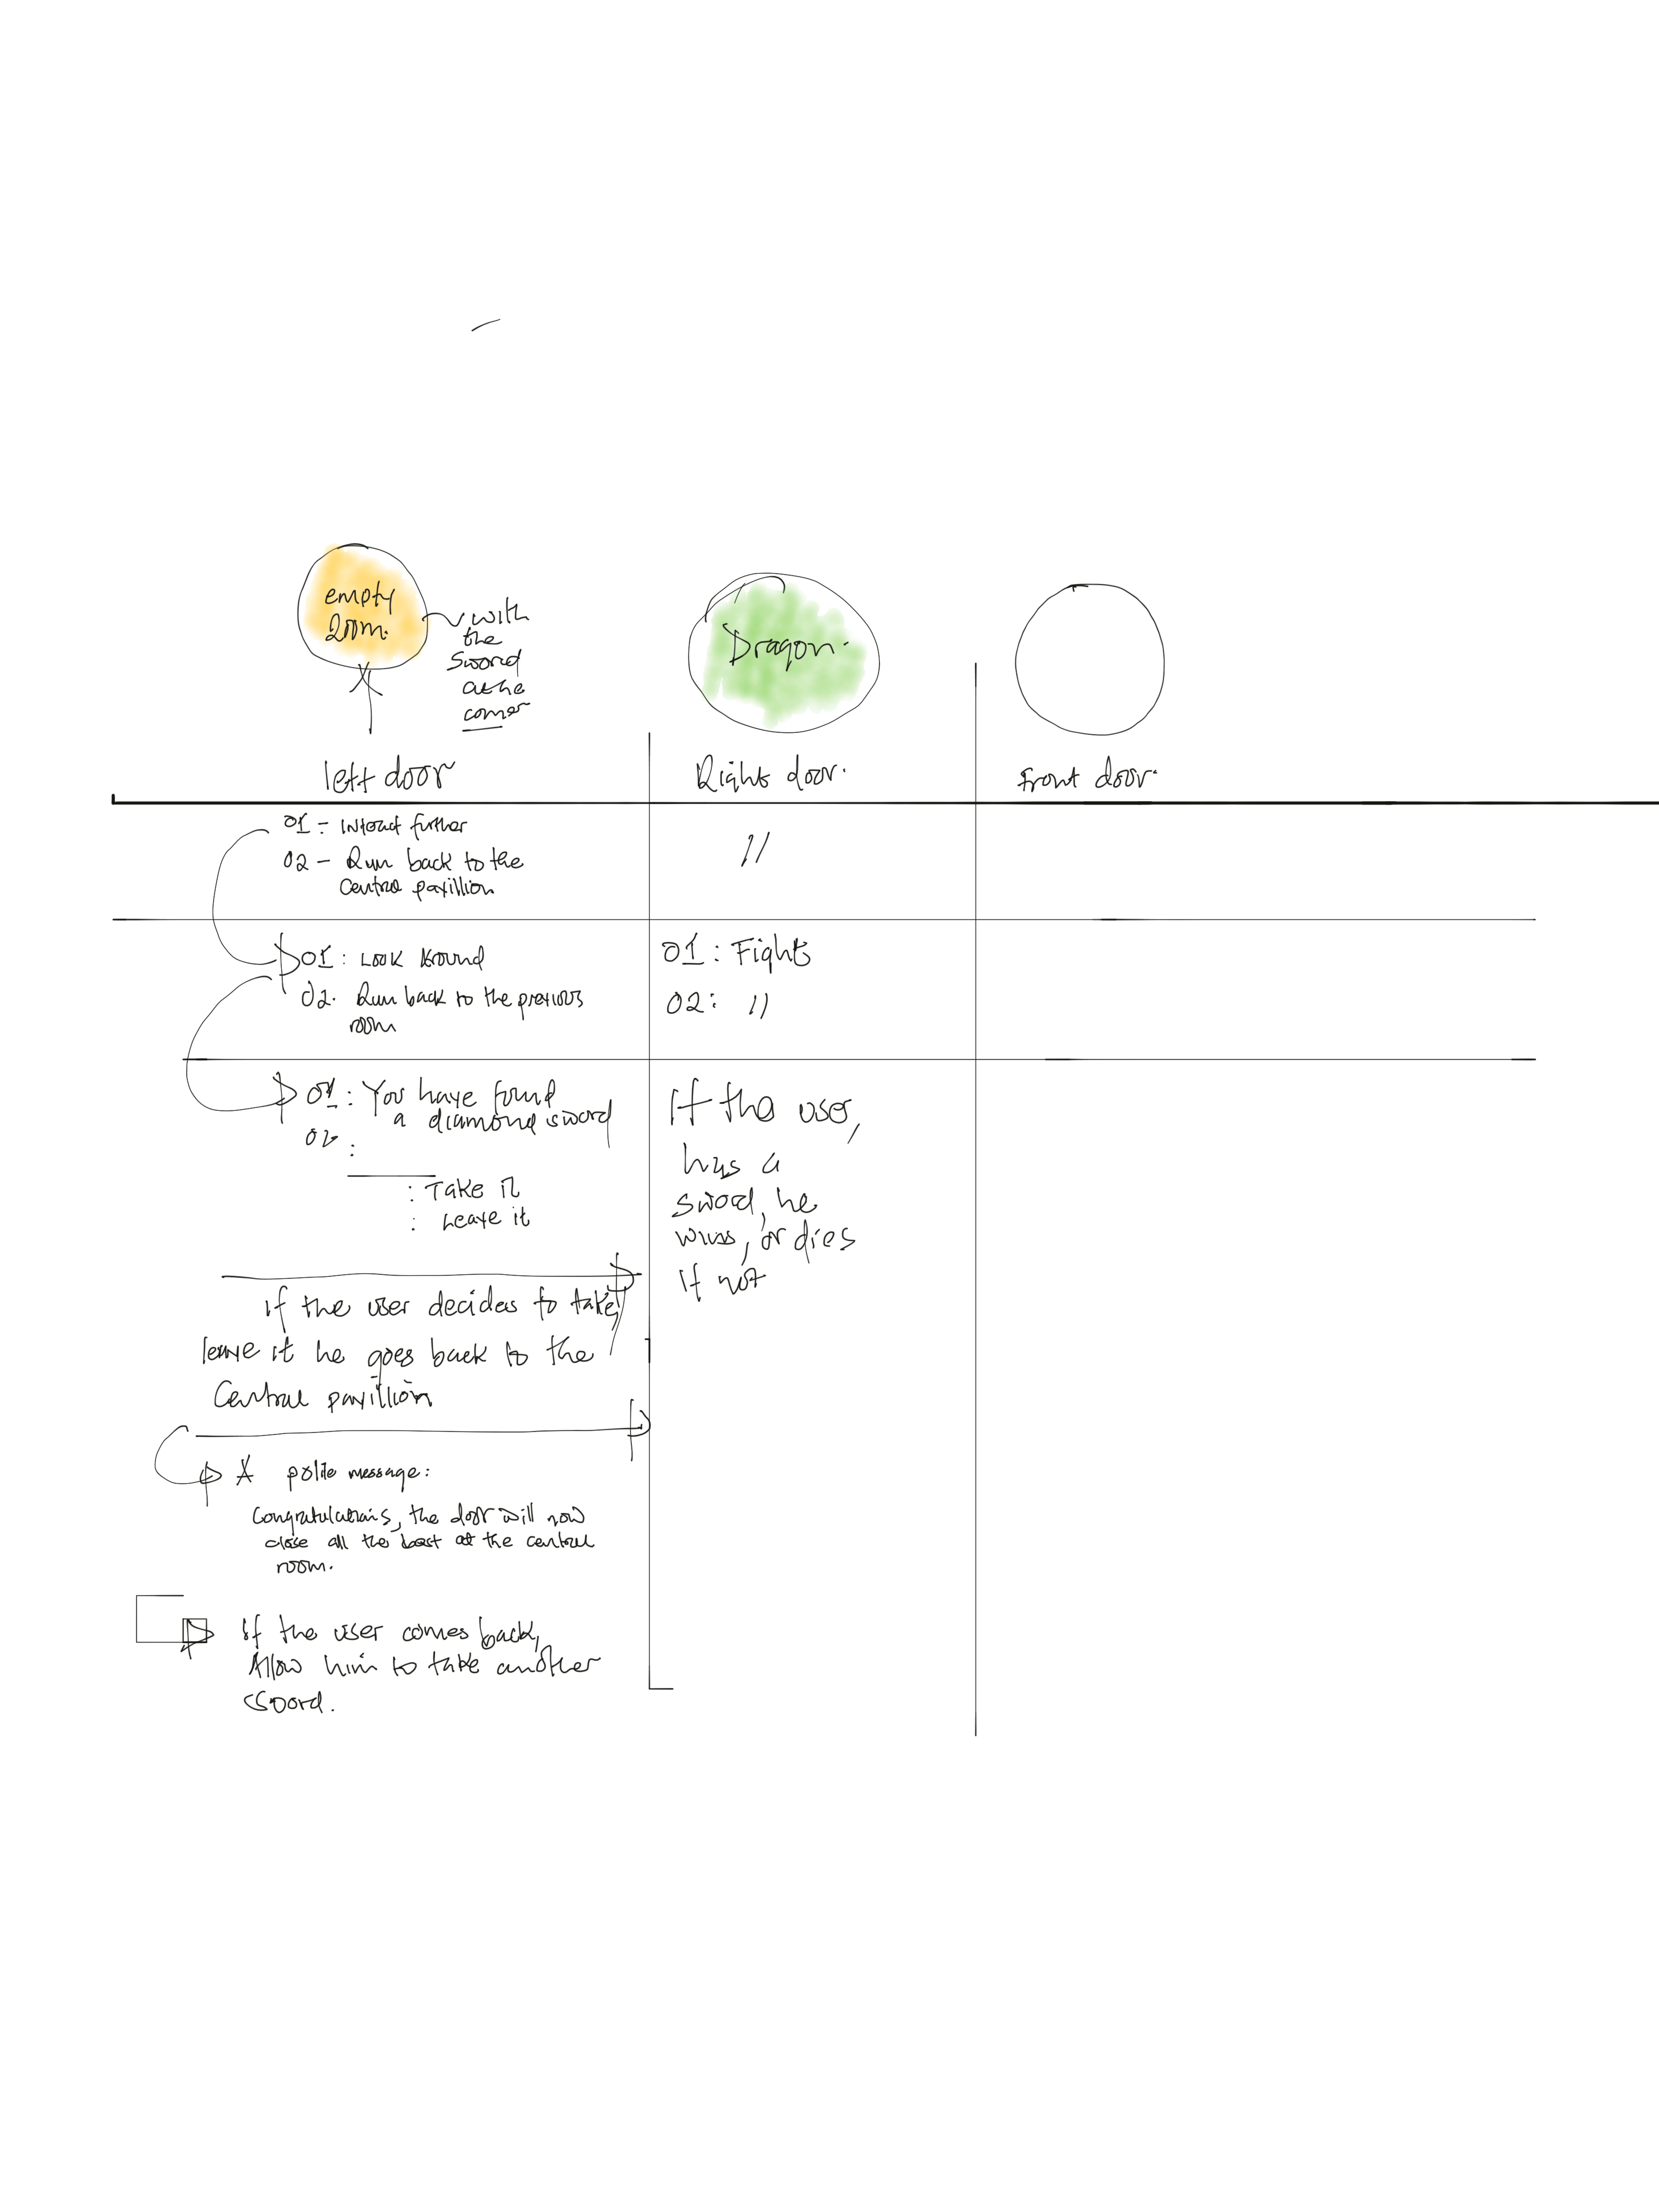 empty
room.
with
the
sword
at the
corner
Dragon.
left door
Right door.
front door.
01 - Interact further
02 - Run back to the
central pavillion
//
01: Look Around
02. Run back to the previous
room
01: Fight
02: //
01: You have found
a diamond sword
02
:
: Take it
: Leave it
If the user decides to take,
leave it he goes back to the
Central pavillion
A polite message:
Congratulations, the door will now
close all the best at the central
room.
If the user comes back,
Allow him to take another
sword.
If the user,
has a
sword, he
wins, or dies
If not